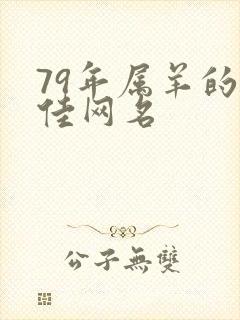 79年属羊的
佳网名
公子無雙